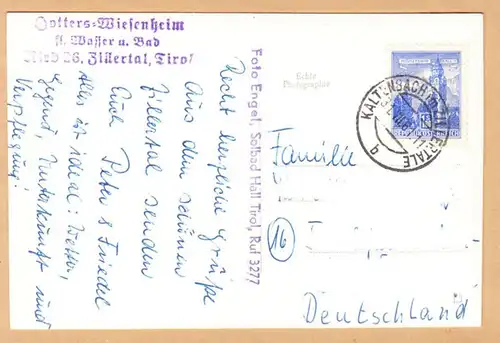 Gotters=Wiesenheim
fl. Wasser u. Bad
Ried 26, Zillertal, Tirol
Recht herzliche Grüße
Aus dem schönen
Zillertal senden
Euch Peter & Friedel
Alles ist ideal: Wetter,
Gegend, Unterkunft und
Verpflegung!
Foto Engel, Solbad Hall Tirol, Ruf 3277
Echte
Photographie
KALTENBACH im ZILLERTALE
b
Familie
16
Deutschland